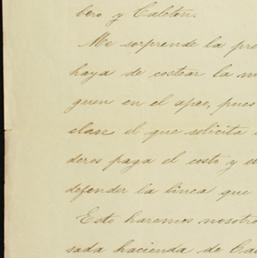 bero y Calcton.
Me sorprende la pre
haya de costear la m
guen en el apeo, pues
clase el que solicita
deros paga el costo y
defender la linea que
Esto haremos nosotro
sada hacienda de Ca